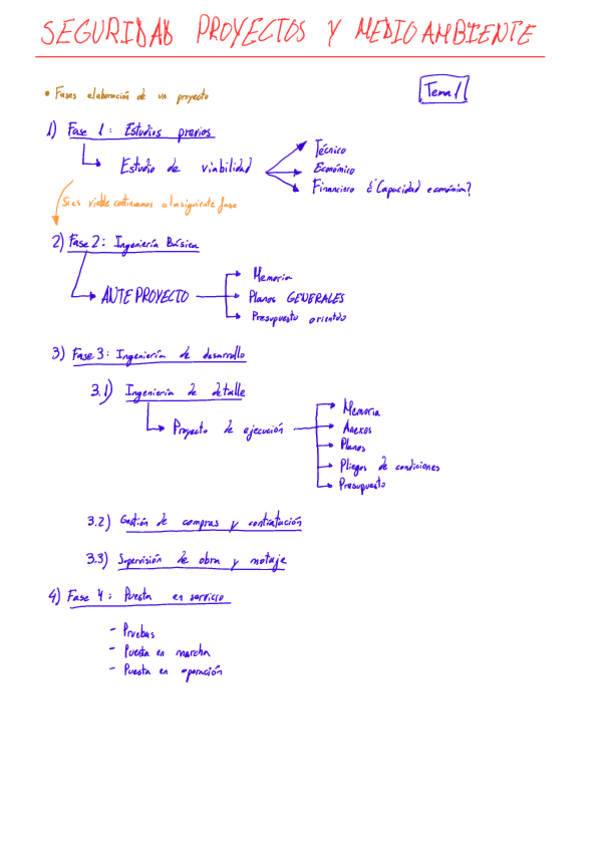 SEGURIDAD PROYECTOS Y MEDIO AMBIENTE
• Fases elaboración de un proyecto
Tema 1
1) Fase 1: Estudios previos
Estudio de viabilidad
Técnico
Económico
Financiero ¿Capacidad económica?
Si es viable continuamos a la siguiente fase
2) Fase 2: Ingeniería Básica
ANTEPROYECTO
Memoria
Planos GENERALES
Presupuesto orientdo
3) Fase 3: Ingeniería de desarrollo
3.1) Ingeniería de detalle
Proyecto de ejecución
Memoria
Anexos
Planos
Pliegos de condiciones
Presupuesto
3.2) Gestión de compras y contratación
3.3) Supervisión de obra y motaje
4) Fase 4: Puesta en servicio
- Pruebas
- Puesta en marcha
- Puesta en operación